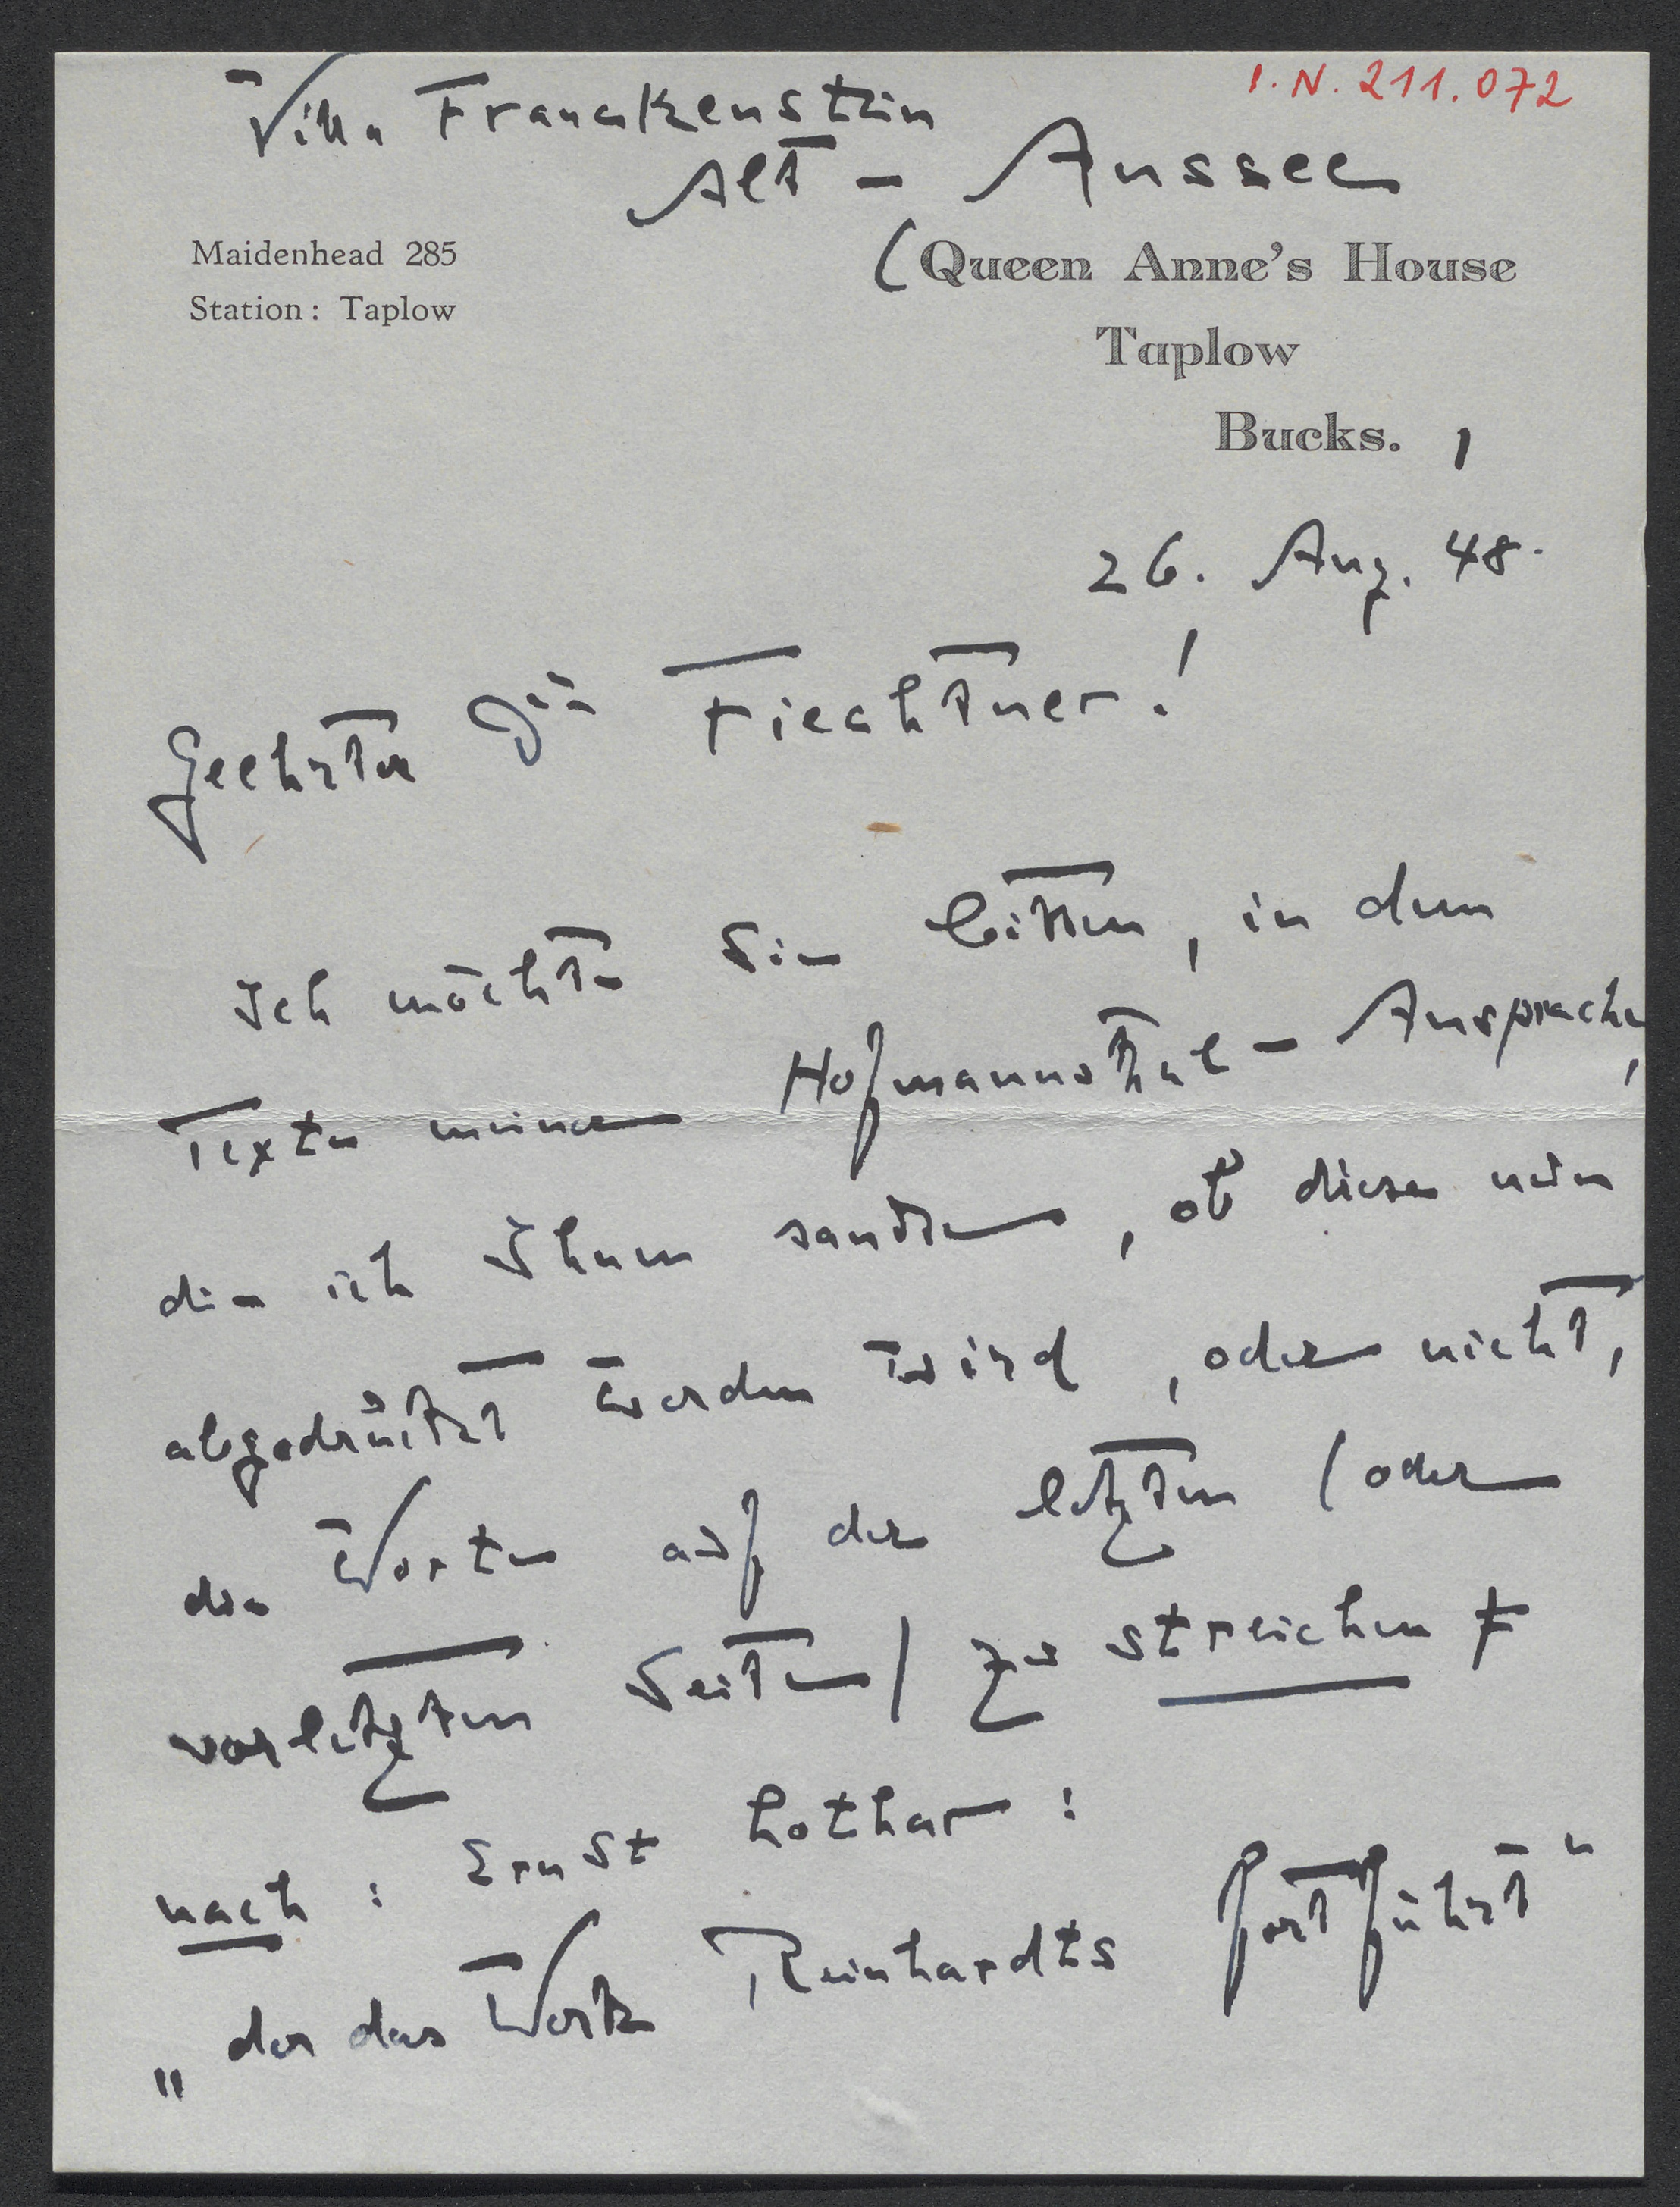 I.N. 211.072
Villa Franckenstein
Alt - Aussee
Maidenhead 285
Station: Taplow
(Queen Anne's House
Taplow
Bucks. )
26. Aug. 48.
Geehrter Dr Fiechtner!
Ich möchte Sie bitten, in dem
Texte meiner Hofmannsthal - Ansprache,
die ich Ihnen sandte, ob diese nun
abgedruckt werden wird, oder nicht,
die Worte auf der letzten (oder
vorletzten Seite) zu streichen
nach: Ernst Lothar:
„der das Werk Reinhardts fortführt"